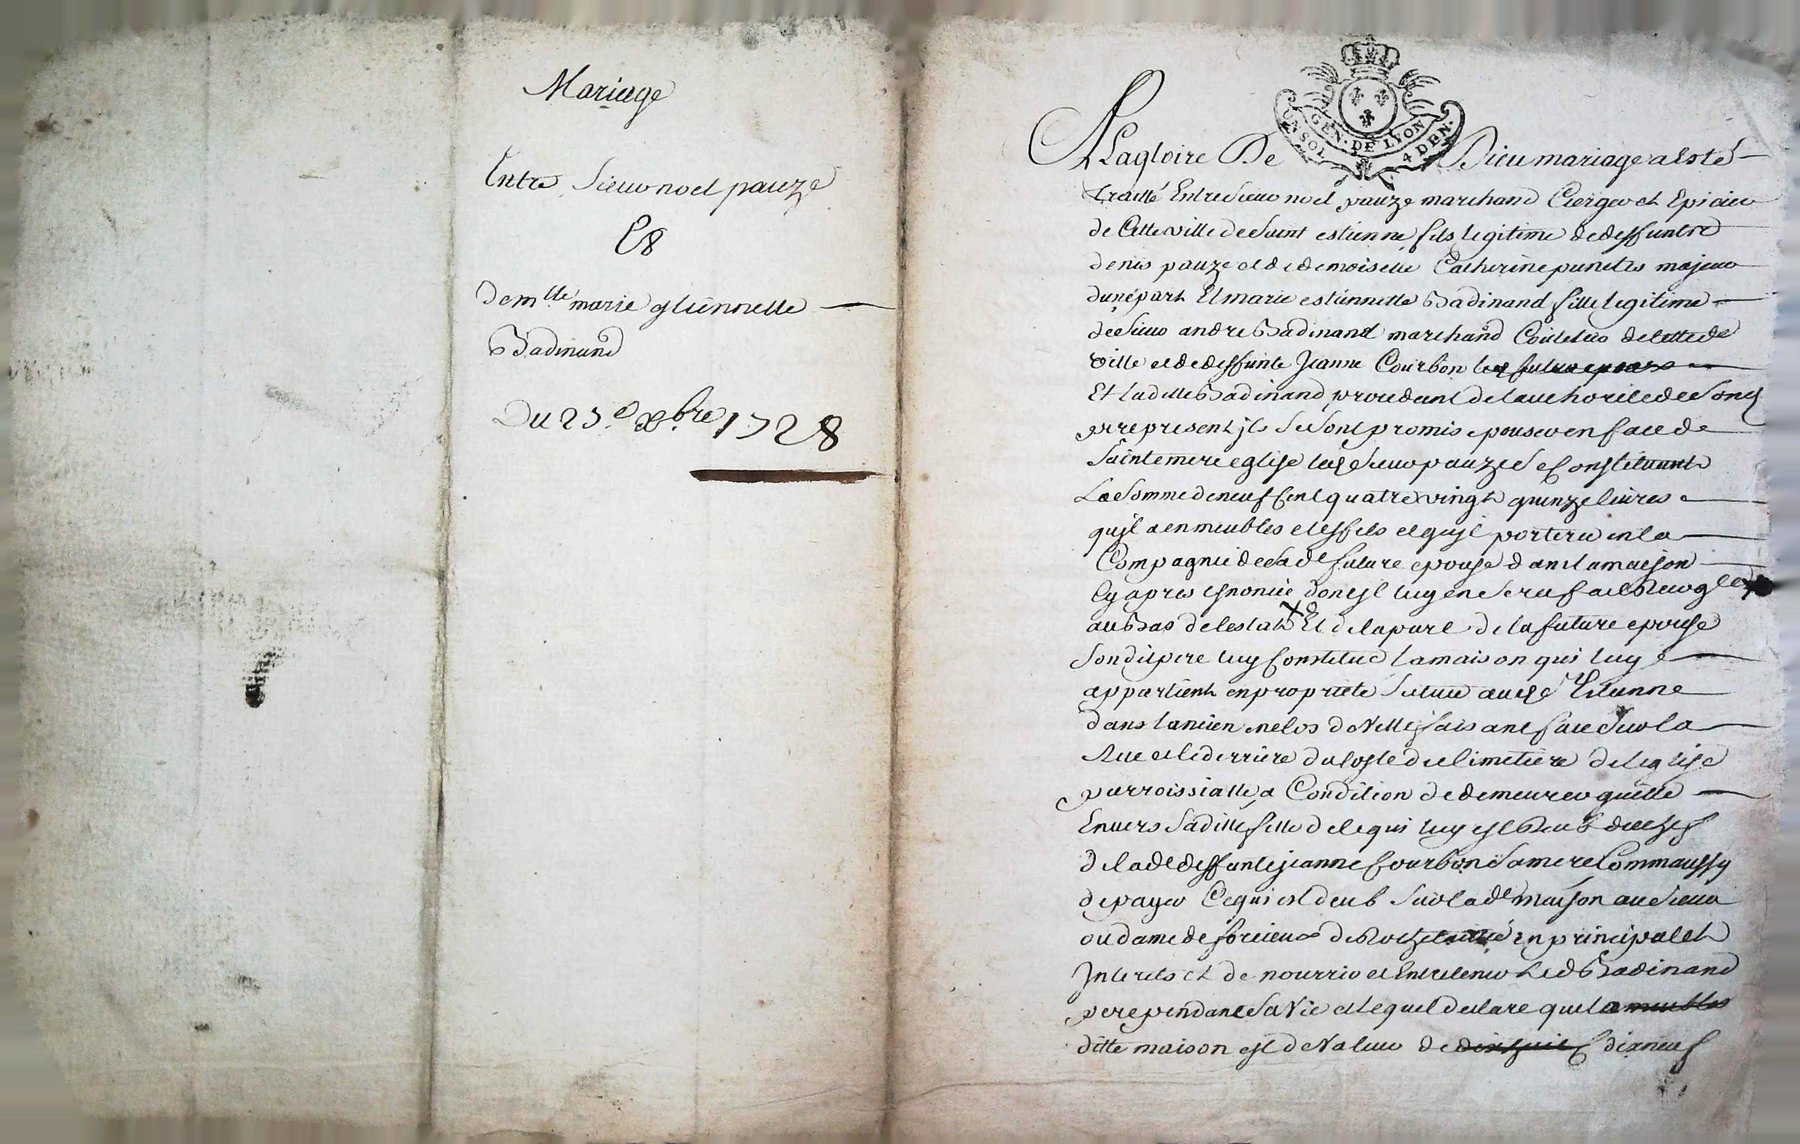 Mariage
Entre Sieur noel pauze
Et
Dem.lle marie estiennette
Badinand
Du 23.e xbre 1728
GEN. DE LYON
UN SOL 4 DEN.
A La gloire De Dieu mariage a esté
traitté Entre Sieur noel pauze marchand Ciergier et Epicier
de Cette ville de Saint estienne fils legitime de deffunt Sr
denis pauze et de demoiselle Catherine punctis majeur
dune part Et marie estiennette Badinand fille legitime
de Sieur andré Badinand marchand Coutelier de cette de
ville et de deffunte Jeanne Courbon les futurs epoux
Et la ditte Badinand procedant de lauthorité de Sond
pere present ils se sont promis epouser en face de
Sainte mere eglise led Sieur pauze Se Constituant
La Somme de neuf Cent quatre vingt quinze livres
quil a en meubles et effets et quil portera en la
Compagnie de sa de future epouse dans la maison
Cy apres enoncée donc il luy en sera fait
au bas de lestat Et de la part de la future epouse
Son dit pere luy Constitue la maison qui luy
appartient en propriete Scituée aud St Etienne
dans lancien enclos de Ville faisant face Sur la
Rue et le derriere du Costé du Cimetiere de leglise
parroissialle a Condition de demeurer quitte
Envers Sa ditte fille de ce qui luy est deub du chef
de la de deffunte jeanne Courbon Sa mere Comm aussy
de payer Ce qui est deub Sur la de maison au Sieur
ou dame de en principal et
Interets et de nourrir et Entretenir Led Badinand
pere pendant Sa Vie et Lequel declare que la meubles
ditte maison est de Valeur de dixhuit Cdixneuf